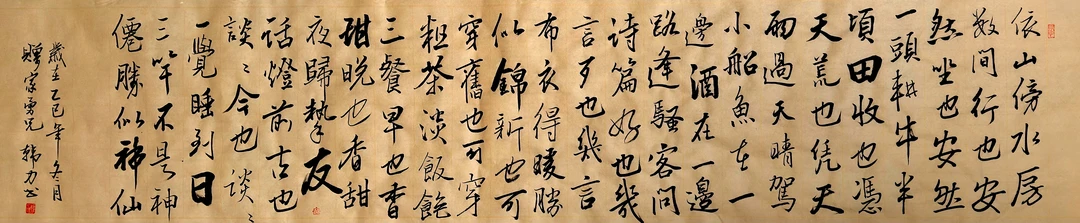 依山傍水房
数间行也安
然坐也安然
一頭耕牛半
頃田收也憑
天荒也凭天
雨過天晴駕
小船魚在一
邊酒在一邊
路逢騷客問
诗篇好也幾
言歹也幾言
布衣得暖勝
似錦新也可
穿舊也可穿
粗茶淡飯飽
三餐早也香
甜晚也香甜
夜歸摯友
話燈前古也
談〻今也談〻
一覺睡到日
三竿不是神
僊勝似神仙
歲在乙巳年冬月
贈家勇兄 韩力书